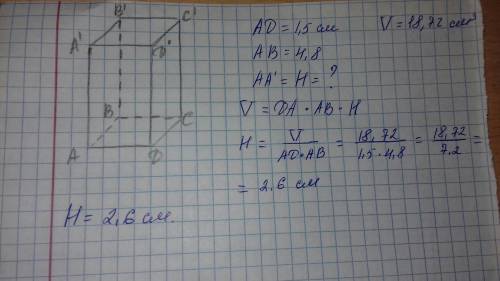 B' C'
A' D'
B C
A D
AD = 1,5 см V = 18,72 см³
AB = 4,8
AA' = H = ?
V = DA · AB · H
H = V / AD·AB = 18,72 / 1,5·4,8 = 18,72 / 7.2 =
= 2.6 см
H = 2,6 см.